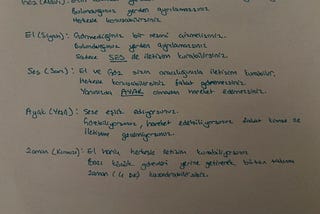 Bulunduğunuz yerden ayrılamazsınız.
Herkesle konuşabilirsiniz.
El (Siyah): Görmediğiniz bir resmi çizmelisiniz.
Bulunduğunuz yerden ayrılamazsınız
Sadece SES ile iletişim kurabilirsiniz.
Ses (Sarı): El ve Göz sizin aracılığınızla iletişim kurabilir,
Herkesle konuşabilirsiniz fakat göremezsiniz.
Yanınızda AYAK olmadan hareket edemezsiniz.
Ayak (Yeşil): Sese eşlik ediyorsunuz.
Görebiliyorsunuz, hareket edebiliyorsunuz fakat kimse ile
iletişime geçemiyorsunuz.
Zaman (Kırmızı): El hariç herkesle iletişim kurabiliyorsunuz
Bazı küçük görevleri yerine getirerek bütün takıma
zaman (4 DK) kazandırabilirsiniz.